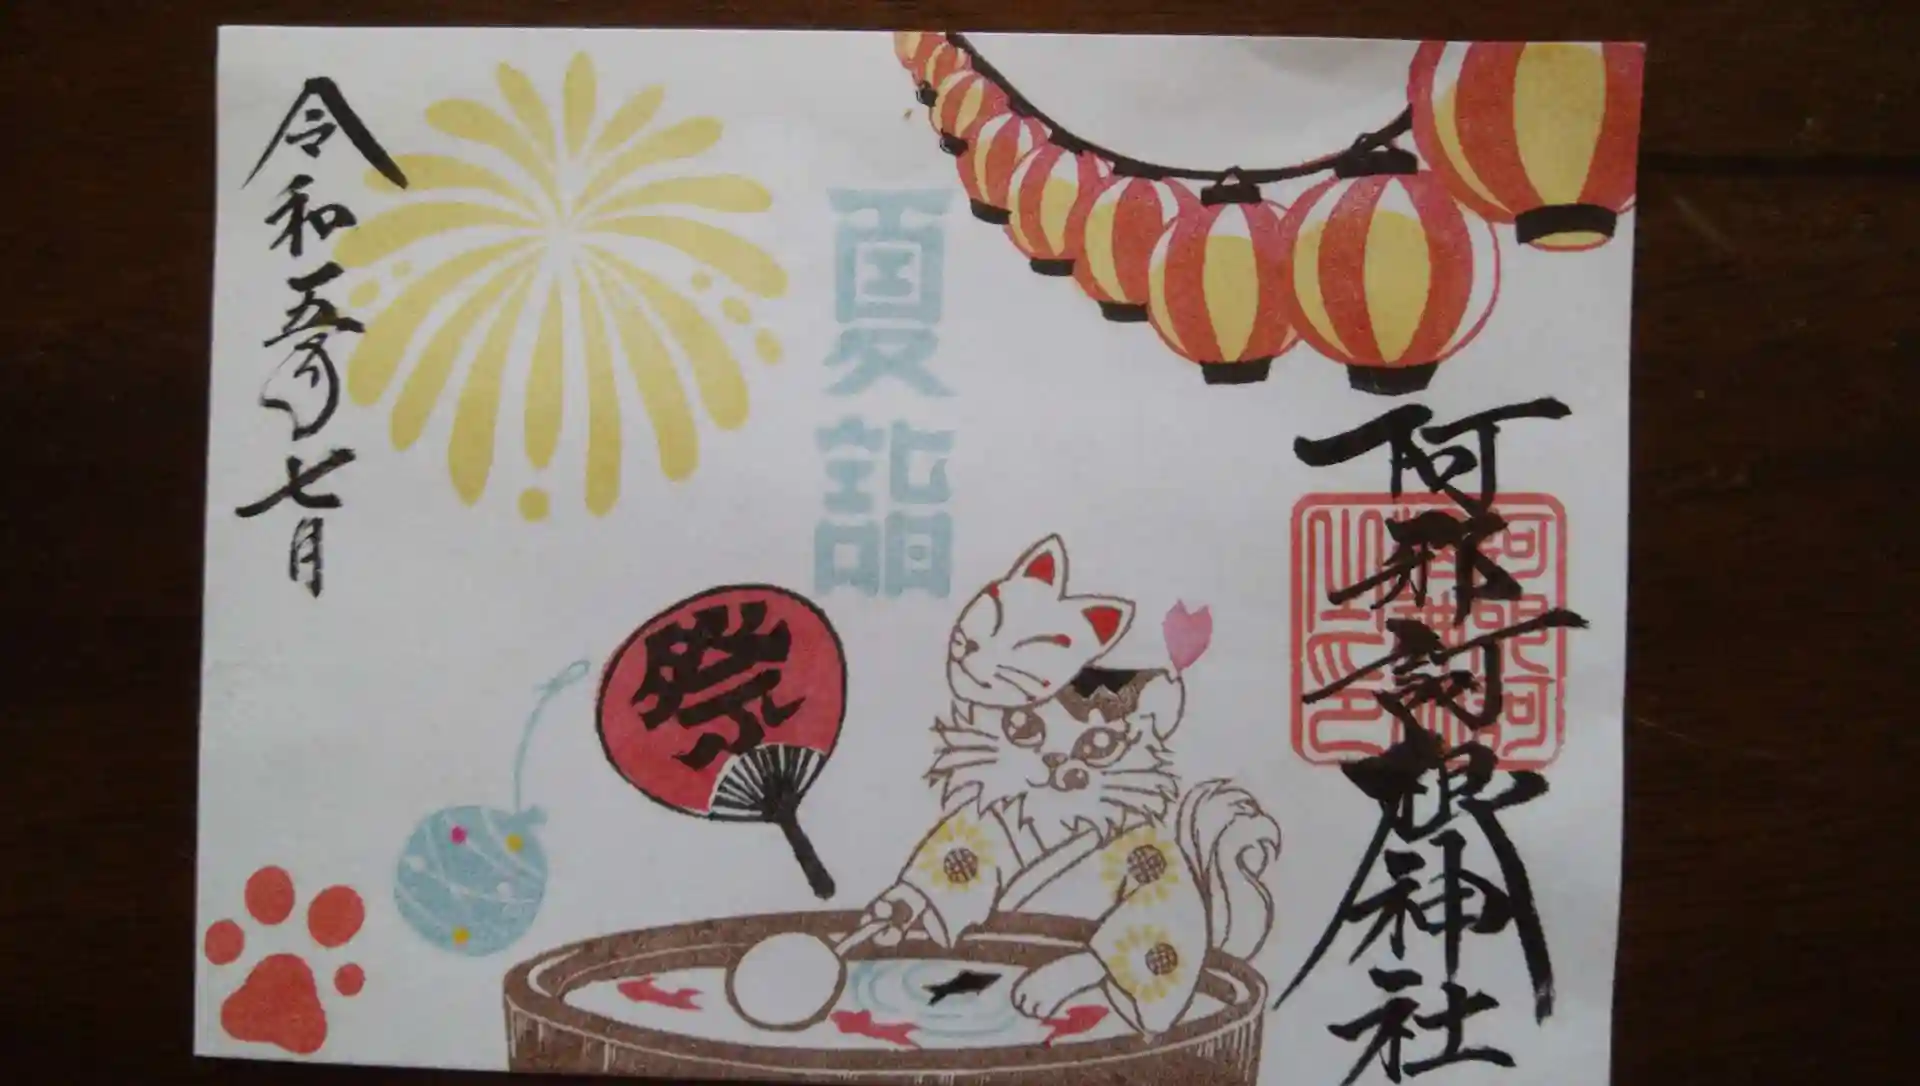 阿邪訶根神社
夏詣
祭
令和五年七月